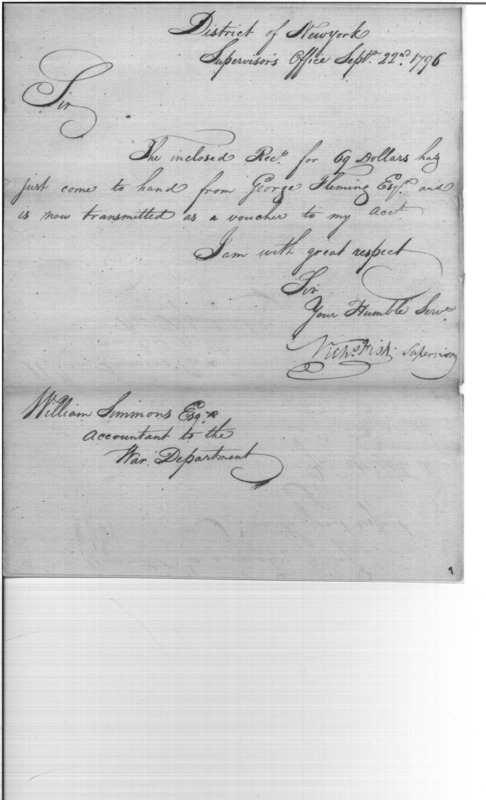 District of Newyork
Supervisor's Office Sept.r 22nd. 1796
Sir
The inclosed Rec.t for 69 Dollars has
just come to hand from George Fleming Esq.r and
is now transmitted as a voucher to my acct
I am with great respect
Sir
Your Humble Serv.t
Nichs Fish Supervisor
William Simmons Esq.r
accountant to the
War Department